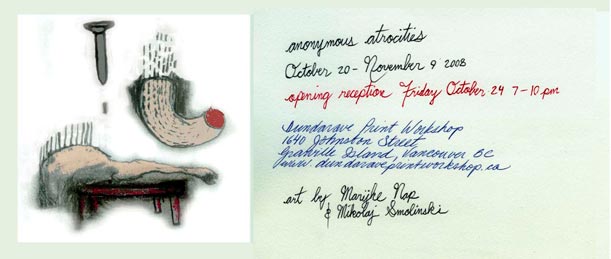 anonymous atrocities
October 20 - November 9 2008
opening reception Friday October 24 7-10 pm
Dundarave Print Workshop
1640 Johnston Street
Granville Island, Vancouver BC
www.dundaraveprintworkshop.ca
art by Marijke Nap
& Mikolaj Smolinski